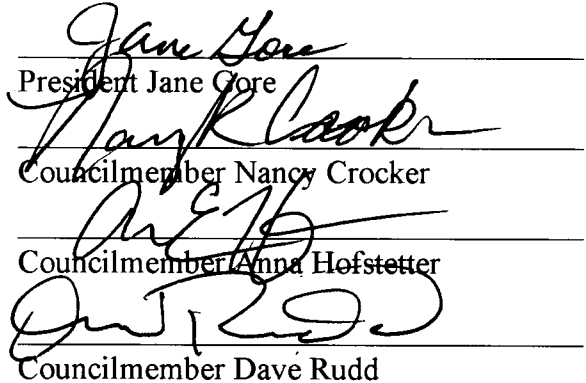 Jane Gore
President Jane Gore
Nancy R Crocker
Councilmember Nancy Crocker
Councilmember Anna Hofstetter
Dave Rudd
Councilmember Dave Rudd